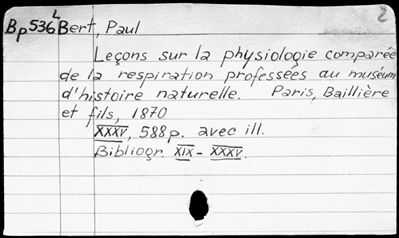 2
Bp536L Bert, Paul
Leçons sur la physiologie comparée
de la respiration professées au muséum
d'histoire naturelle. Paris, Baillière
et fils, 1870
XXXV, 588p. avec ill.
Bibliogr. XIX - XXXV.